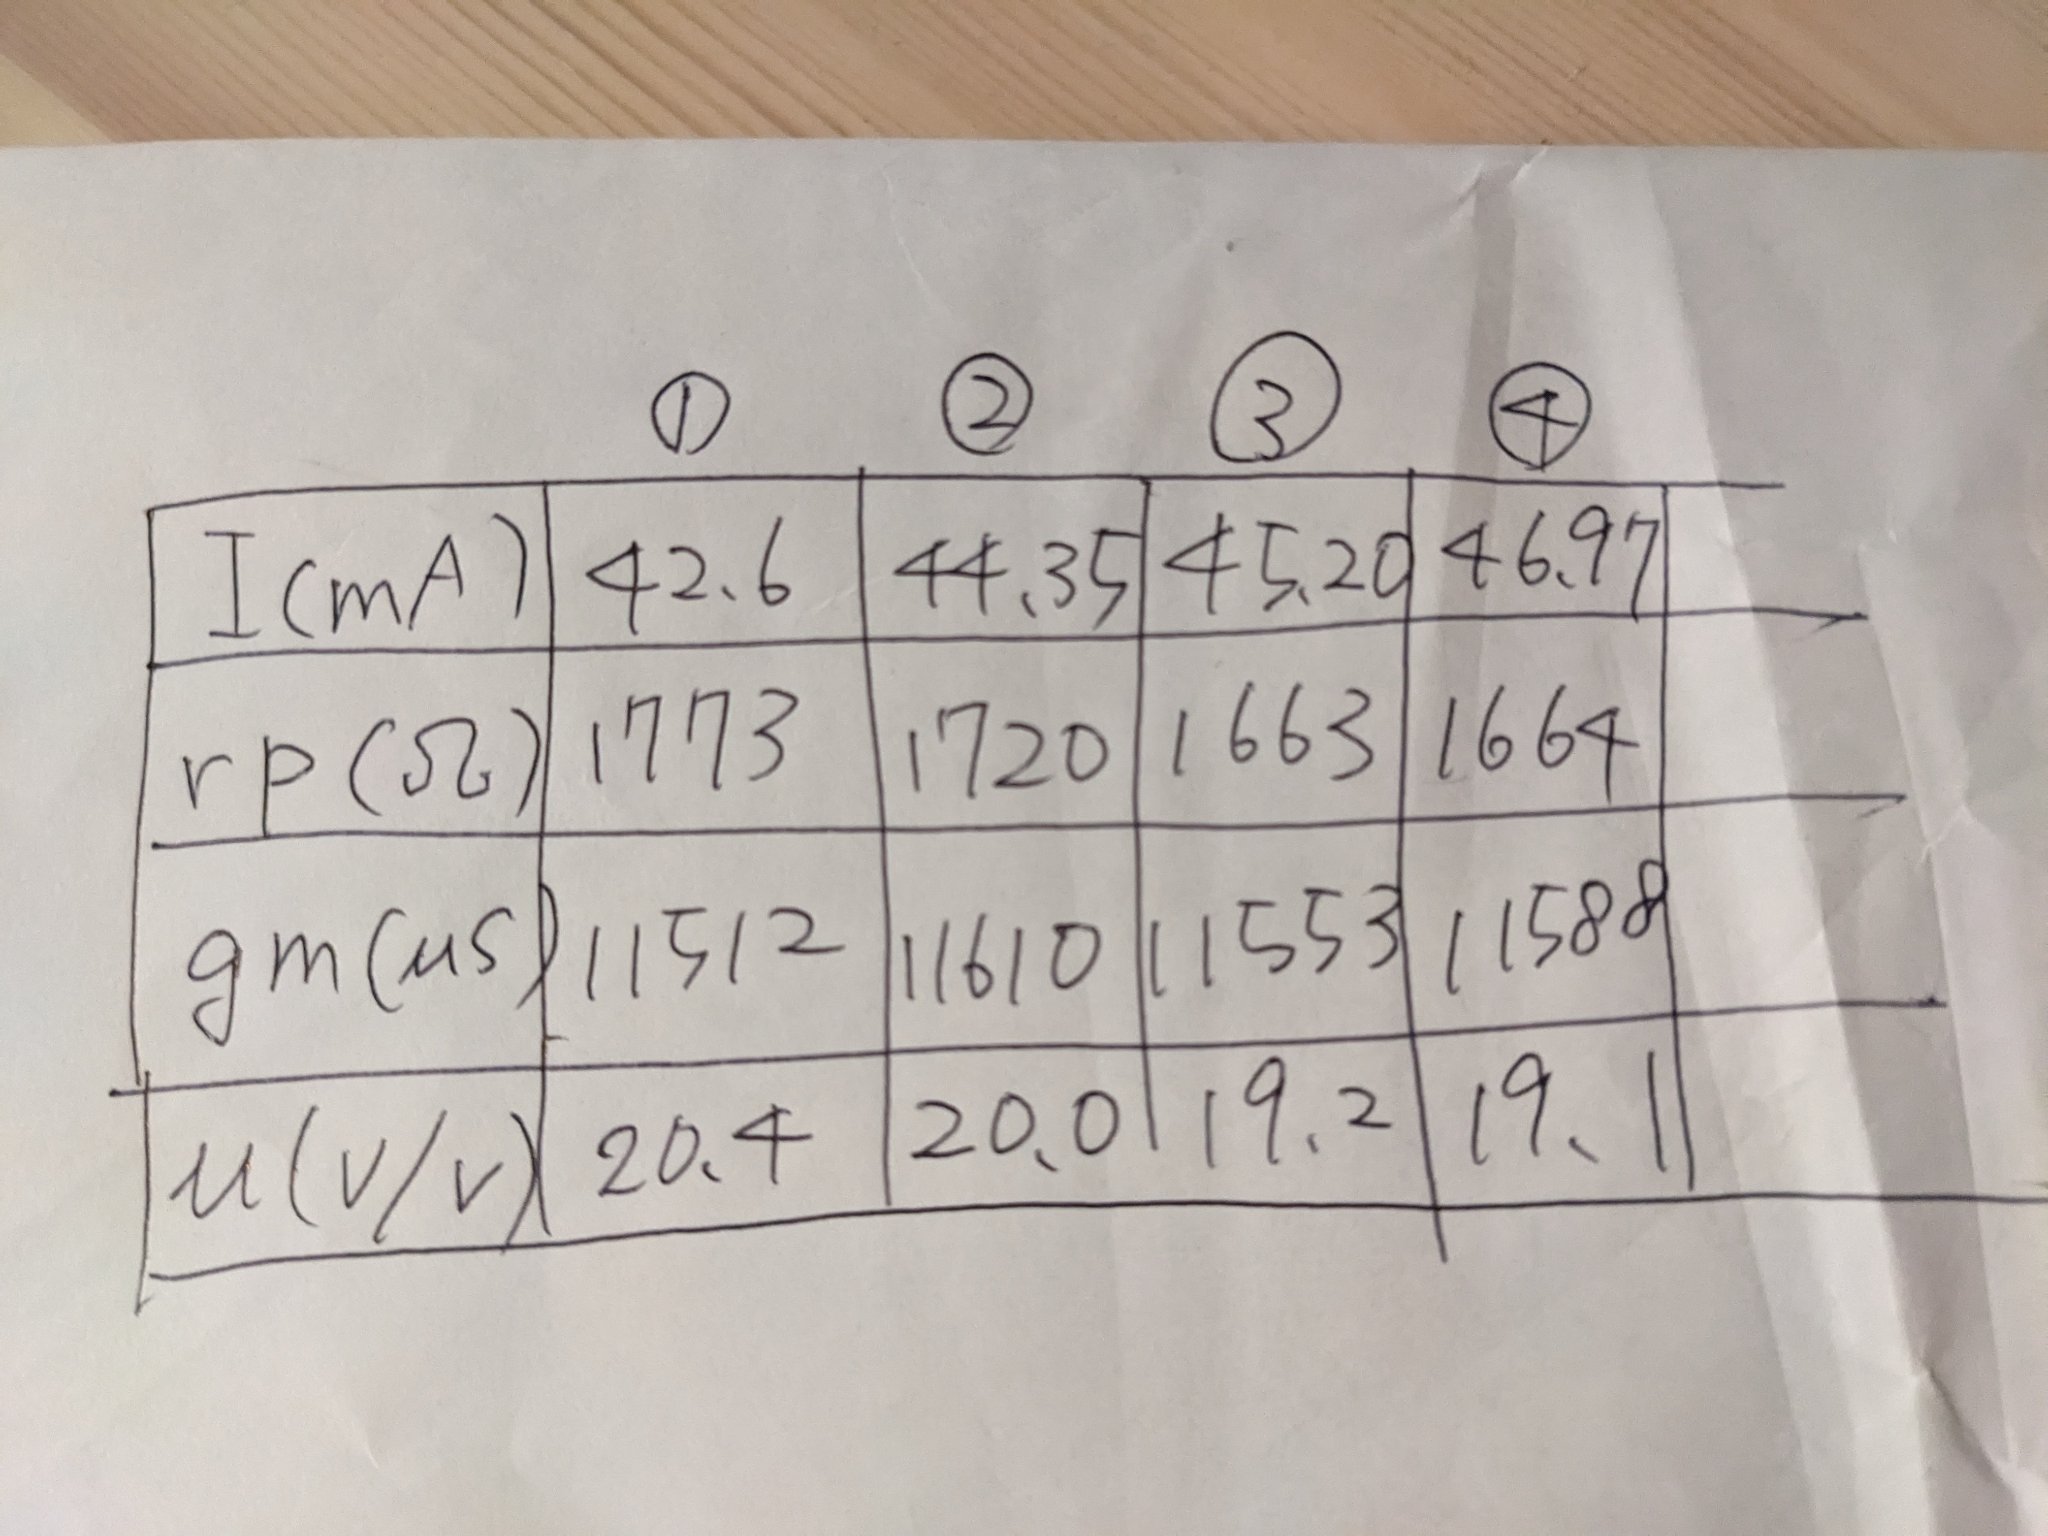 ① ② ③ ④
I(mA) 42.6 44.35 45.20 46.97
rp(Ω) 1773 1720 1663 1664
gm(μs) 11512 11610 11553 11588
μ(v/v) 20.4 20.0 19.2 19.1